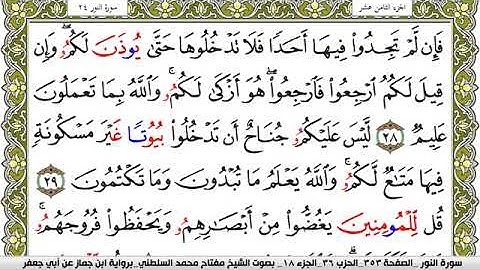 الجزء الثامن عشر
سورة النور ٢٤
فَإِن لَّمْ تَجِدُوا۟ فِيهَآ أَحَدًا فَلَا تَدْخُلُوهَا حَتَّىٰ يُوذَنَ لَكُمُۥ ۖ وَإِن
قِيلَ لَكُمُ ٱرْجِعُوا۟ فَٱرْجِعُوا۟ ۖ هُوَ أَزْكَىٰ لَكُمُۥ ۚ وَٱللَّهُ بِمَا تَعْمَلُونَ
عَلِيمٌ ٢٨ لَّيْسَ عَلَيْكُمُۥ جُنَاحٌ أَن تَدْخُلُوا۟ بُيُوتًا غَيْرَ مَسْكُونَةٍ
فِيهَا مَتَٰعٌ لَّكُمُۥ ۚ وَٱللَّهُ يَعْلَمُ مَا تُبْدُونَ وَمَا تَكْتُمُونَ ٢٩
قُل لِّلْمُومِنِينَ يَغُضُّوا۟ مِنْ أَبْصَٰرِهِمُۥ وَيَحْفَظُوا۟ فُرُوجَهُمُۥ ۚ
سورة النور_ الصفحة ٣٥٣_الحزب ٣٦_الجزء ١٨_ بصوت الشيخ مفتاح محمد السلطني_برواية ابن جماز عن أبي جعفر